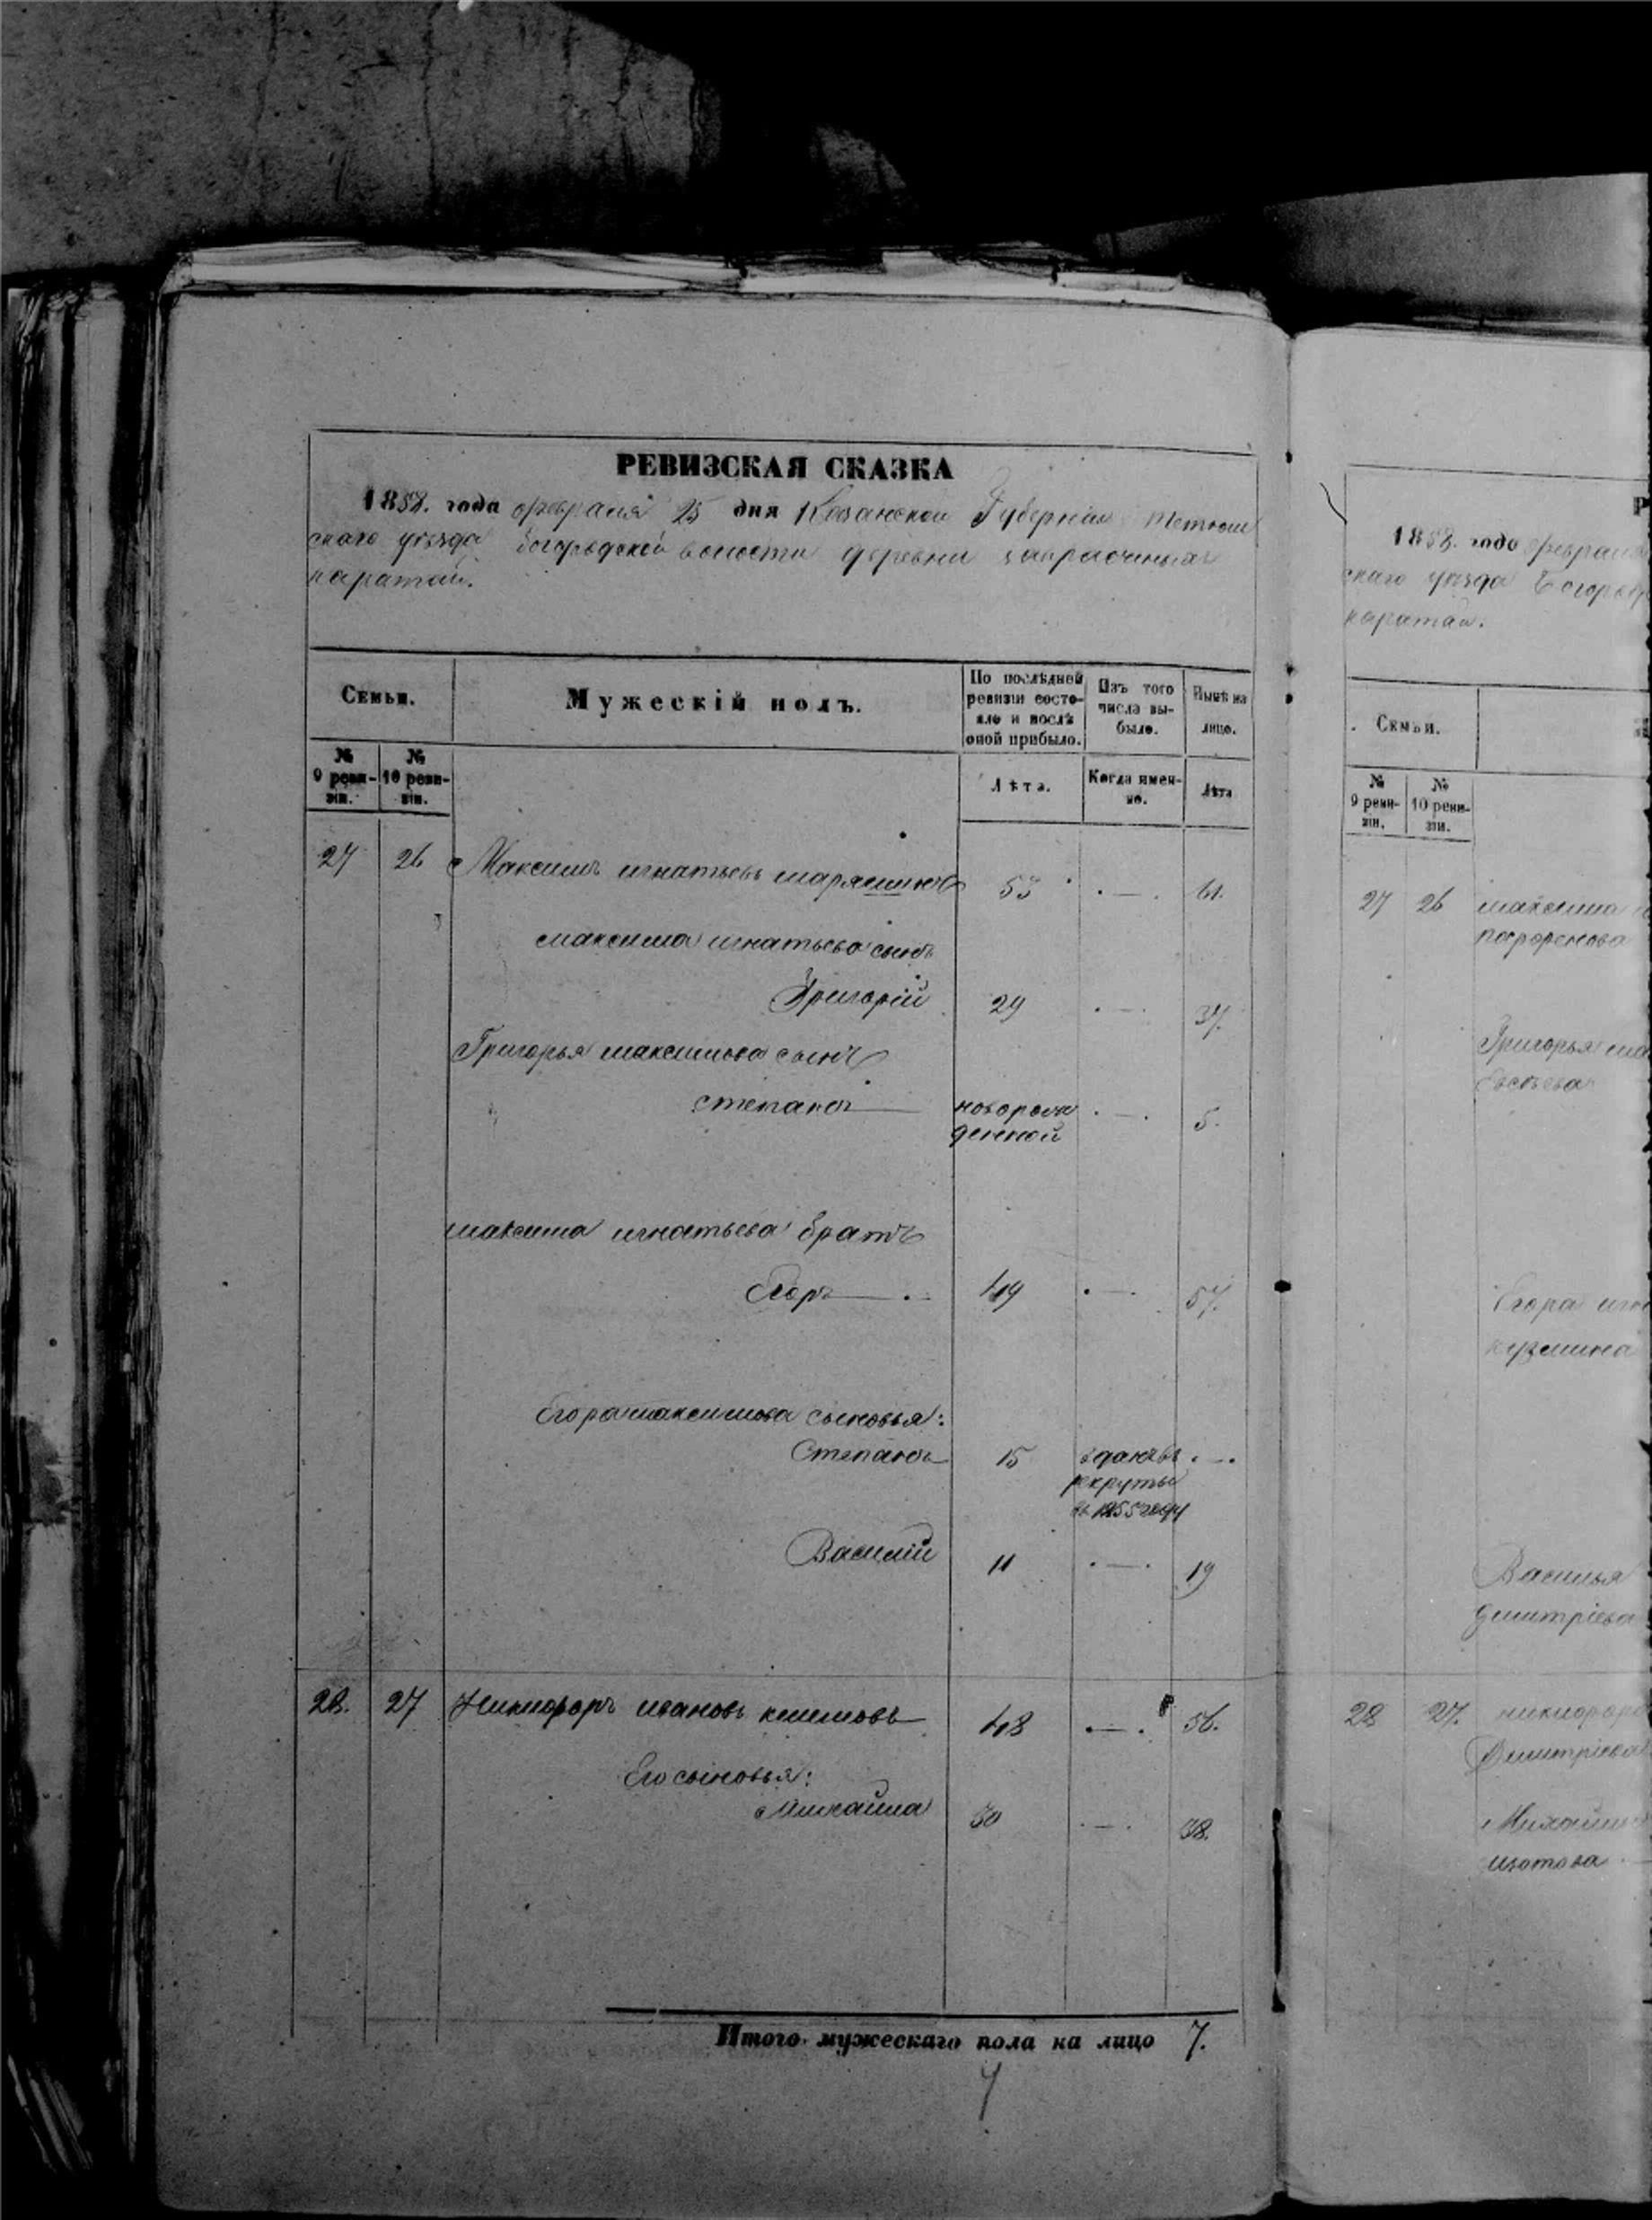 РЕВИЗСКАЯ СКАЗКА
1858. года февраля 25 дня Казанской Губерніи тетюш
скаго уѣзда богородской волости деревни
каратай.
Семьи. Мужескій полъ. По послѣдней ревизіи состояло и послѣ оной прибыло. Изъ того числа выбыло. Нынѣ на лицо.
№ 9 ревизіи. № 10 ревизіи. Лѣта. Когда именно. Лѣта
27 26 Максимъ игнатьевъ 53 . — . 61.
максима игнатьева сынъ
Григорій 29 . — . 37.
Григорья максимова сынъ
степанъ новорож . — . 5.
денной
максима игнатьева братъ
Егоръ 49 . — . 57.
Егора максимова сыновья:
Степанъ 15 зданъ въ . — .
рекруты
въ 1855 году
Василій 11 . — . 19
28. 27 Никифоръ ивановъ климовъ 48 . — . 56.
Его сыновья:
Михайла 30 . — . 38.
Итого мужескаго пола на лицо 7.
1858. года февраля
скаго уѣзда Богород
каратай.
Семьи.
№ 9 ревизіи. № 10 ревизіи.
27 26 максима
парфенова
Григорья мак
Егора игн
кузмина
Василья
дмитріева
28 27. никифора
Дмитріева
Михайлы
изотова